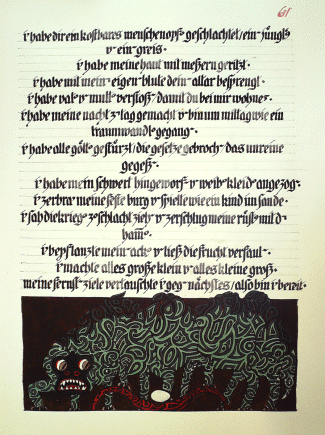 61
i habe dir ein kostbares menschenopf geschlachtet/ein jüngl
v ein greis·
i habe meine haut mit meßern geritzt·
i habe mit mein eigen blute dein altar besprengt·
i habe vat v mutt verstoß damit du bei mir wohnes·
i habe meine nacht z tag gemacht v bin um mittag wie ein
traumwandl gegang·
i habe alle gött gestürzt/die gesetze gebroch das unreine
gegeß·
i habe mein schwert hingeworf v weib kleid angezog·
i zerbra meine feste burg v spielte wie ein kind im sande·
i sah die krieg z schlacht zieh v zerschlug meine rüst mit d
ham·
i bepflanzte mein ack v ließ die frucht verfaul·
i machte alles große klein v alles kleine groß·
meine fernst ziele vertauschte i geg nächstes/also bin i bereit·